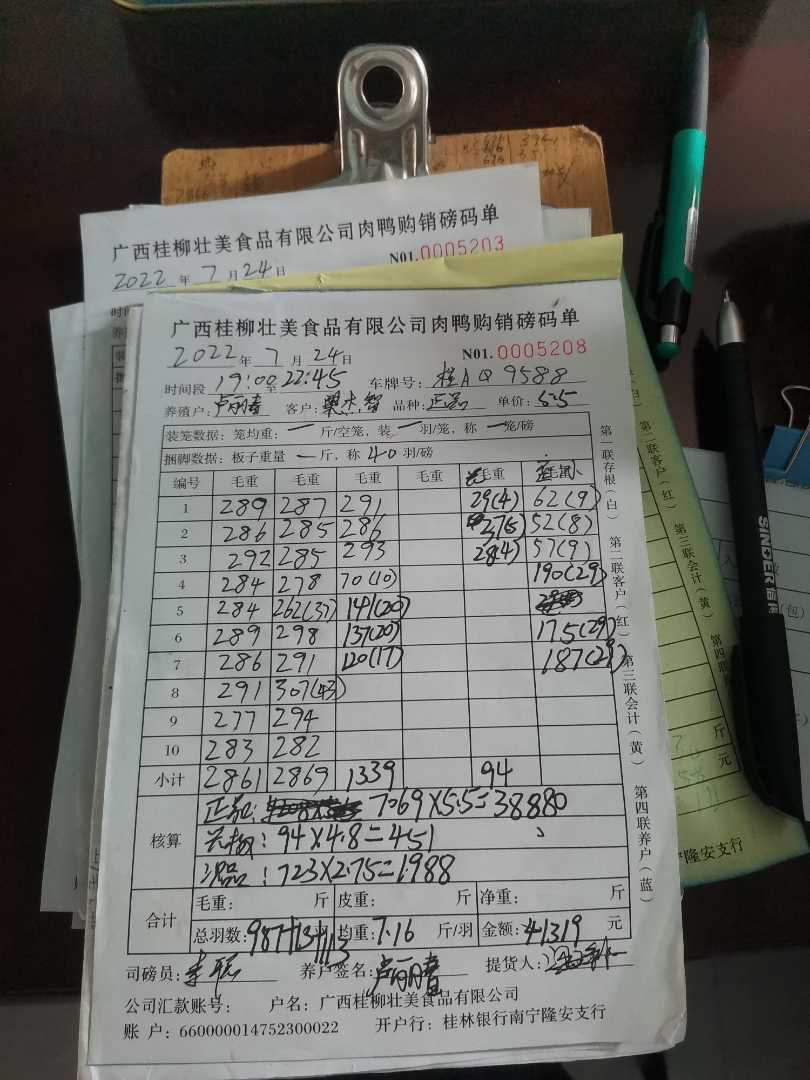 广西桂柳壮美食品有限公司肉鸭购销磅码单
2022年7月24日
N01.0005203
广西桂柳壮美食品有限公司肉鸭购销磅码单
2022年7月24日 N01.0005208
时间段19:00至22:45 车牌号:桂AQ9588
养殖户:卢丽春 客户:梁杰智 品种:正品 单价:5.5
装笼数据:笼均重:一斤/空笼,装一羽/笼,称一笼/磅
捆脚数据:板子重量一斤,称40羽/磅
编号 毛重 毛重 毛重 毛重 毛重
1 289 287 291 29(4) 62(9)
2 286 285 286 37(5) 52(8)
3 292 285 293 28(4) 57(9)
4 284 278 70(10) 190(29)
5 284 262(37) 141(20)
6 289 298 137(20) 175(29)
7 286 291 120(17) 187(29)
8 291 307(43)
9 277 294
10 283 282
小计 2861 2869 1339 94
核算
正品: 7069×5.5=38880
94×4.8=451
次品:723×2.75=1988
合计
毛重: 斤 皮重: 斤 净重: 斤
总羽数:987+13+113 均重:7.16 斤/羽 金额:41319 元
司磅员:李聪 养户签名:卢丽春 提货人:
公司汇款账号: 户名:广西桂柳壮美食品有限公司
账 户:660000014752300022 开户行:桂林银行南宁隆安支行
第一联存根(白) 第二联客户(红) 第三联会计(黄) 第四联养户(蓝)
第二联客户(红) 第三联会计(黄) 第四联
斤
元
宁隆安支行
SINDER